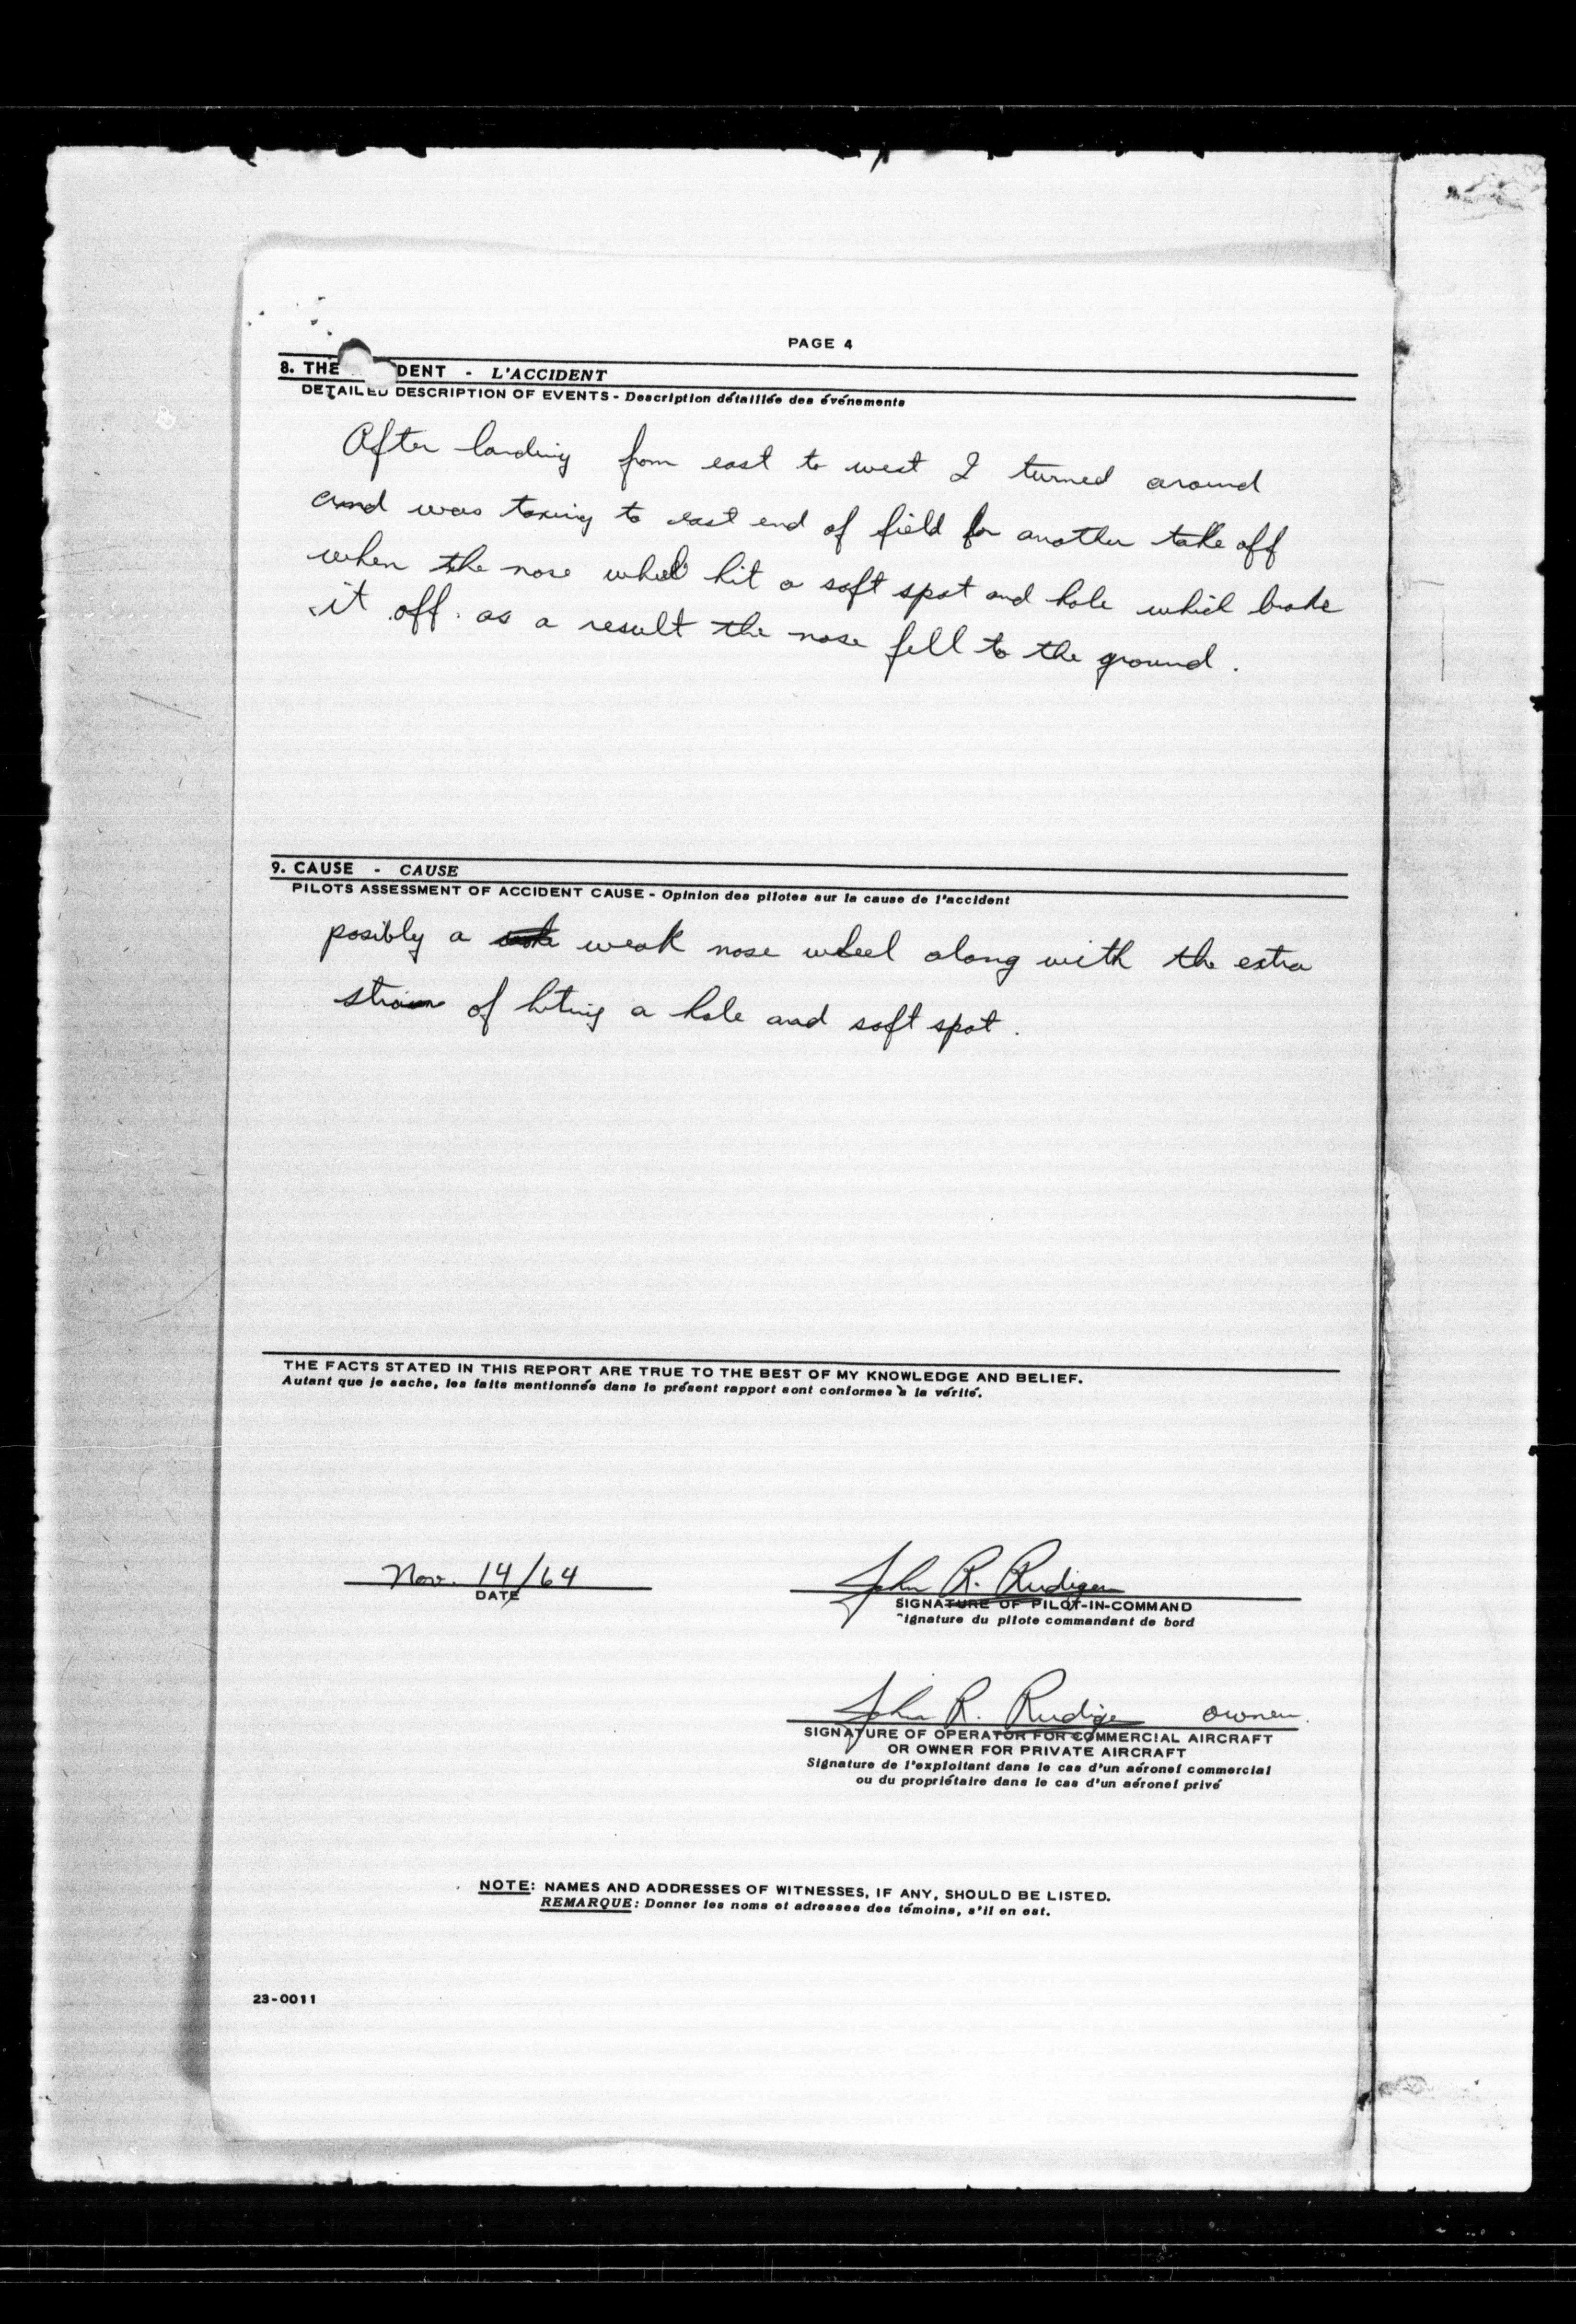 PAGE 4
8. THE DENT - L'ACCIDENT
DETAILED DESCRIPTION OF EVENTS - Description détaillée des événements
After landing from east to west I turned around
and was taxing to east end of field for another take off
when the nose wheel hit a soft spot and hole which broke
it off. as a result the nose fell to the ground.
9. CAUSE - CAUSE
PILOTS ASSESSMENT OF ACCIDENT CAUSE - Opinion des pilotes sur la cause de l'accident
posibly a weak nose wheel along with the extra
strain of hiting a hole and soft spot.
THE FACTS STATED IN THIS REPORT ARE TRUE TO THE BEST OF MY KNOWLEDGE AND BELIEF.
Autant que je sache, les faits mentionnés dans le présent rapport sont conformes à la vérité.
Nov. 14/64
DATE
John R. Rudiger
SIGNATURE OF PILOT-IN-COMMAND
ignature du pilote commandant de bord
John R. Rudiger owner.
SIGNATURE OF OPERATOR FOR COMMERCIAL AIRCRAFT
OR OWNER FOR PRIVATE AIRCRAFT
Signature de l'exploitant dans le cas d'un aéronef commercial
ou du propriétaire dans le cas d'un aéronef privé
NOTE: NAMES AND ADDRESSES OF WITNESSES, IF ANY, SHOULD BE LISTED.
REMARQUE: Donner les noms et adresses des témoins, s'il en est.
23-0011